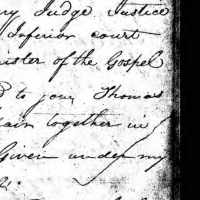 ry Judge Justice
Inferior court
nister of the Gospel
d to join Thomas
ain together in
Given under my